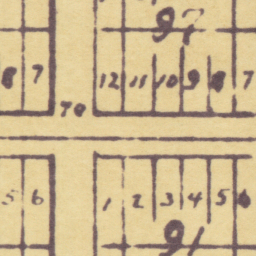 97
8 7 12 11 10 9 8 7
70
5 6 1 2 3 4 5 6
91